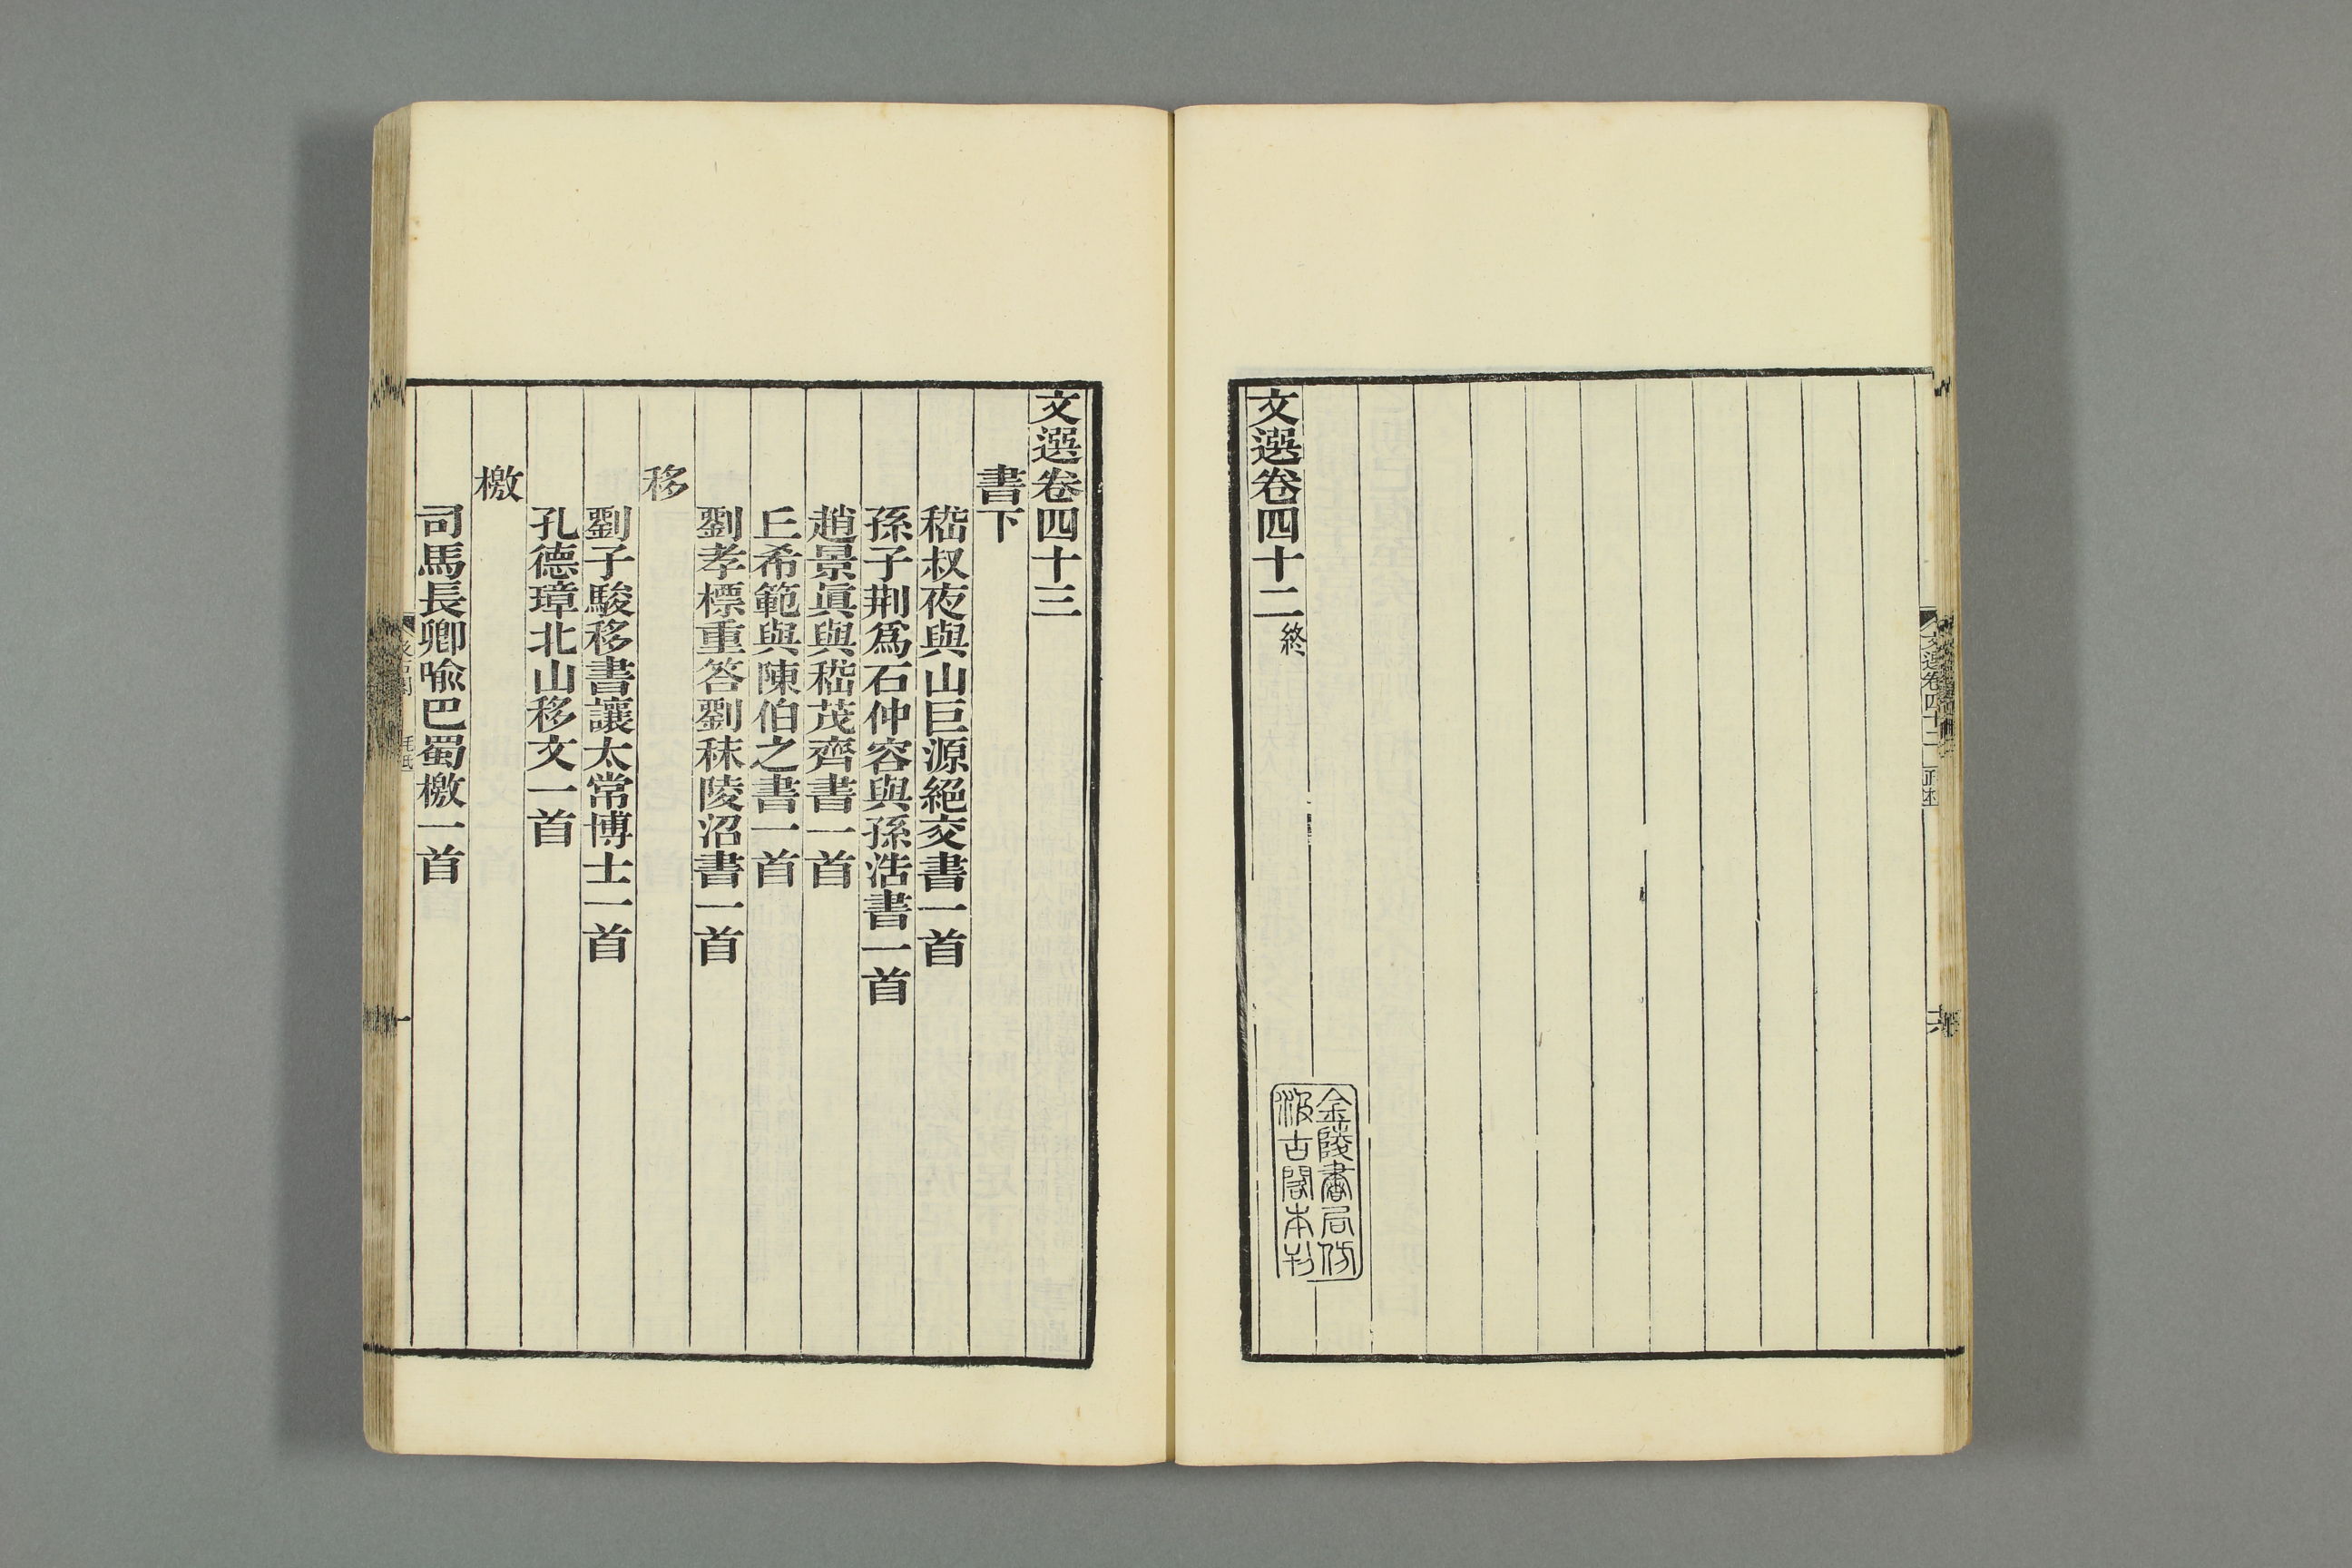 文選卷四十二
十六
文選卷四十二終
金陵書局仿
汲古閣本刊
文選卷四十三
書下
嵇叔夜與山巨源絕交書一首
孫子荆爲石仲容與孫浩書一首
趙景眞與嵇茂齊書一首
丘希範與陳伯之書一首
劉孝標重答劉秣陵沼書一首
移
劉子駿移書讓太常博士一首
孔德璋北山移文一首
檄
司馬長卿喻巴蜀檄一首